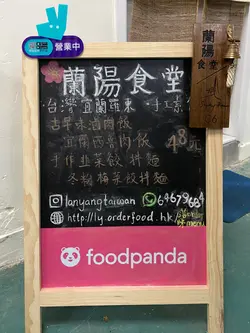 營業中
蘭陽食堂
蘭陽食堂
·台灣宜蘭羅東·手工素
古早味滷肉飯
宜蘭西魯肉飯 48元
手作韭菜餃拌麵
冬粉韮菜餃拌麵
lanyangtaiwan 64679684
http://ly.orderfood.hk
foodpanda